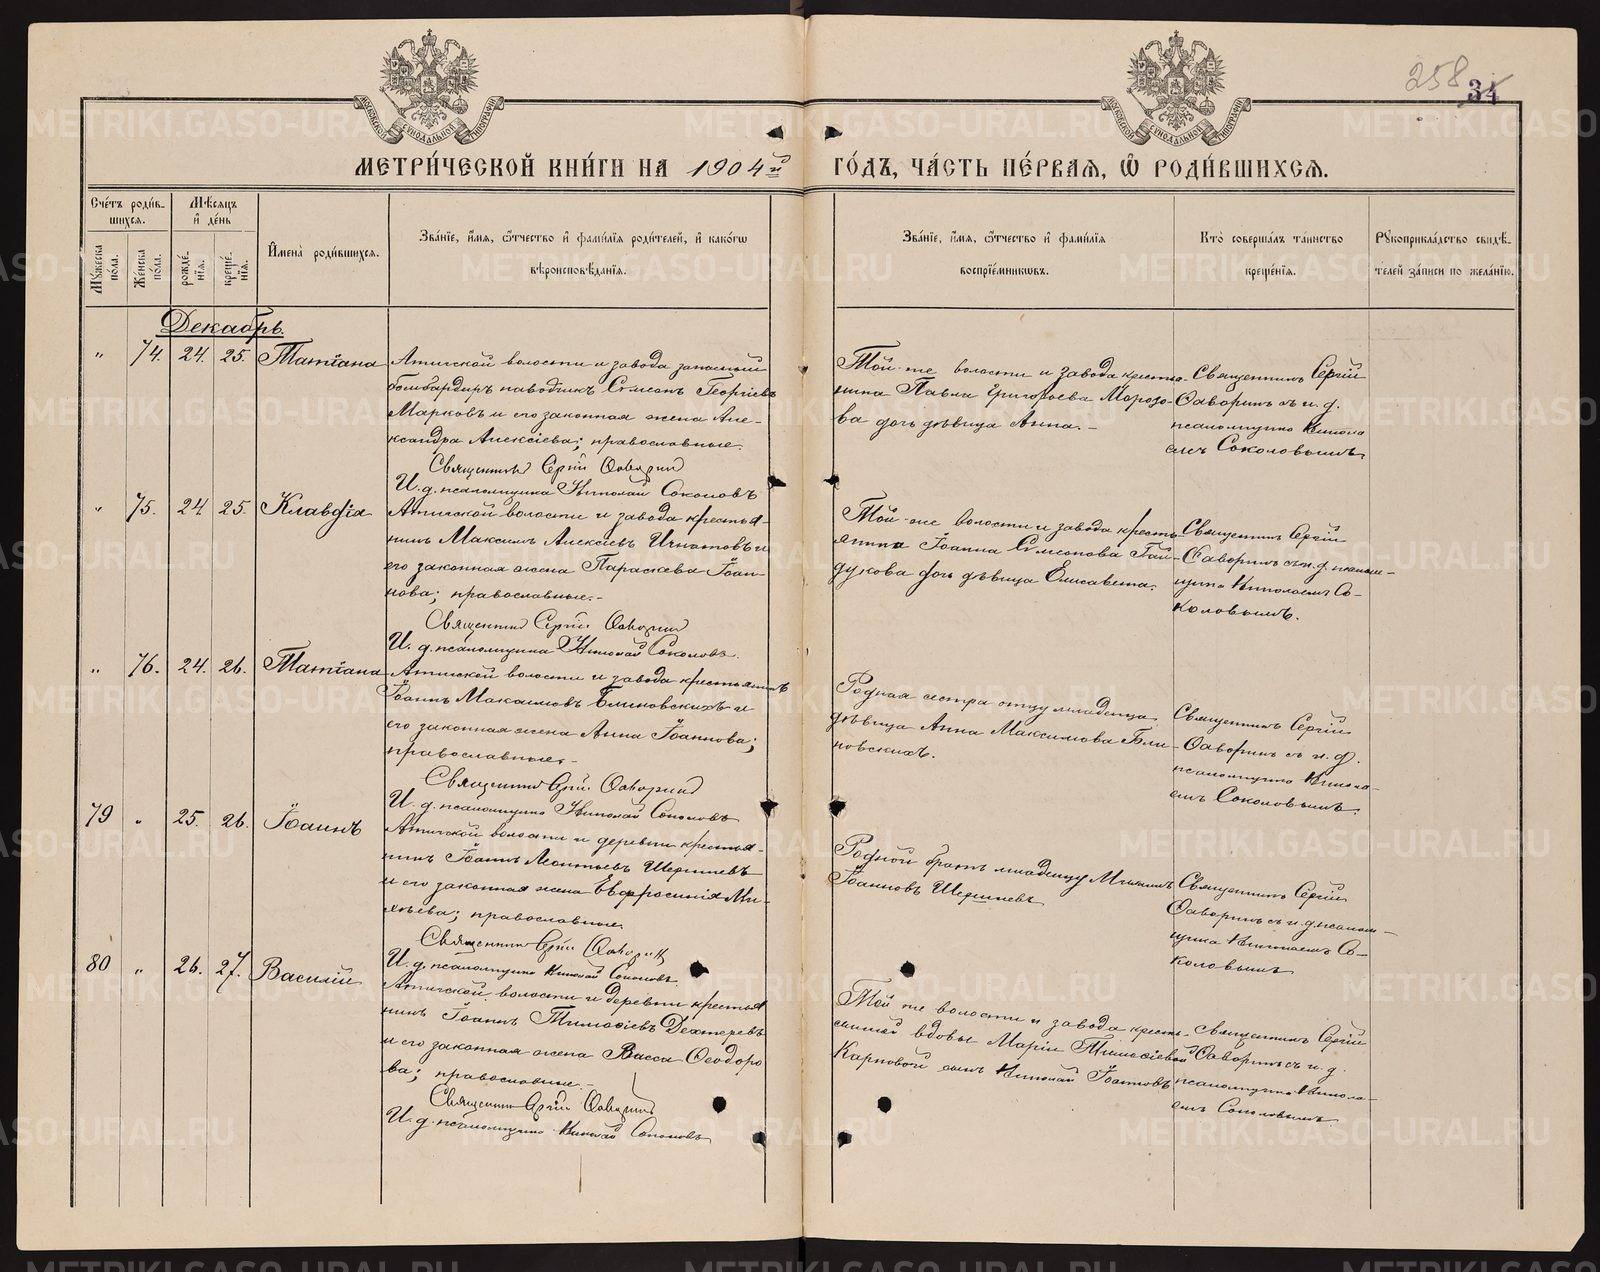 258
34
МОСКОВСКОЙ СѴНОДАЛЬНОЙ ТИПОГРАФІИ
МОСКОВСКОЙ СѴНОДАЛЬНОЙ ТИПОГРАФІИ
МЕТРИ́ЧЕСКОЙ КНИ́ГИ НА 1904й ГО́ДЪ, ЧА́СТЬ ПЕ́РВАЯ, Ѡ РОДИ́ВШИХСѦ.
Сче́тъ роди́вшихсѧ.
Мѣ́сѧцъ и҆ де́нь
Мꙋ́жеска по́ла.
Же́нска по́ла.
рожде́нїѧ.
креще́нїѧ.
И҆мена̀ роди́вшихсѧ.
Зва́нїе, и҆́мѧ, ѻ҆́тчество и҆ фамѝлїѧ роди́телей, и҆ како́гѡ
вѣроисповѣ́данїѧ.
Зва́нїе, и҆́мѧ, ѻ҆́тчество и҆ фамѝлїѧ
воспрїе́мникѡвъ.
Кто̀ соверша́лъ та́инство
креще́нїѧ.
Рꙋкоприкла́дство свидѣ́телей за́писи по жела́нїю.
Декабрь.
" 74. 24. 25. Татіана
Атигской волости и завода запасный
бомбардиръ наводчикъ Симеонъ Георгіевъ
Марковъ и его законная жена Але-
ксандра Алексіева; православные.
Священникъ Сергій
И. д. псаломщика Николай Соколовъ
Той-же волости и завода кресть-
нина Павла Григорьева Морозо-
ва дочь дѣвица Анна.-
Священникъ Сергій
съ и. д.
псаломщика Никола-
емъ Соколовымъ.
" 75. 24 25. Клавдія
Атигской волости и завода крестья-
нинъ Максимъ Алексіевъ Игнатовъ и
его законная жена Параскева Іоан-
нова; православные.-
Священникъ Сергій
И. д. псаломщика Николай Соколовъ.
Той-же волости и завода кресть-
янина Іоанна Симеонова Гай-
дукова дочь дѣвица Елисавета.
Священникъ Сергій
съ и. д. псалом-
щика Николаемъ Со-
коловымъ.
" 76. 24. 26. Татіана
Атигской волости и завода крестьянинъ
Іоаннъ Максимовъ Блиновскихъ и
его законная жена Анна Іоаннова;
православные.-
Священникъ Сергій
И. д. псаломщика Николай Соколовъ
Родная сестра отцу младенца
дѣвица Анна Максимова Бли-
новскихъ.
Священникъ Сергій
съ и. д.
псаломщика Никола-
емъ Соколовымъ.
79 " 25. 26. Іоаннъ
Атигской волости и деревни крестья-
нинъ Іоаннъ Леонтьевъ
и его законная жена Евфросинія Ми-
хѣева; православные.
Священникъ Сергій
И. д. псаломщика Николай Соколовъ.
Родной братъ младенцу
Іоанновъ
Священникъ Сергій
съ и. д. псалом-
щика Николаемъ Со-
коловымъ
80 " 26. 27. Василій
Атигской волости и деревни крестья
нинъ Іоаннъ Тимофіевъ Дехтеревъ
и его законная жена Васса Ѳеодоро
ва; православные.-
Священникъ Сергій
И. д. псаломщика Николай Соколовъ
Той-же волости и завода кресть-
вдовы Маріи Тимофіевой
Карповой сынъ Николай Іоанновъ
Священникъ Сергій
съ и. д.
псаломщика Никола-
емъ Соколовымъ.
METRIKI.GASO-URAL.RU